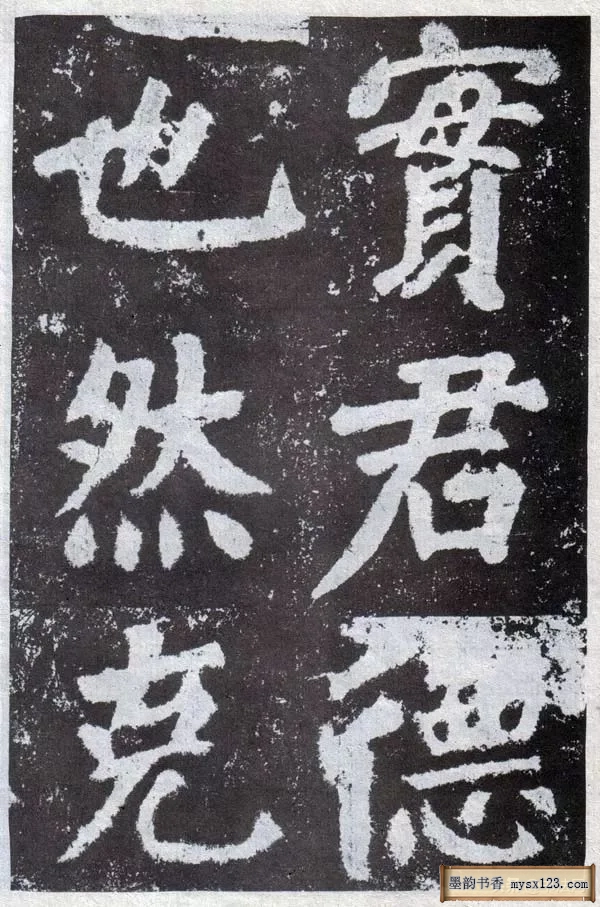 實君德
也然克
墨韵书香 mysx123.com